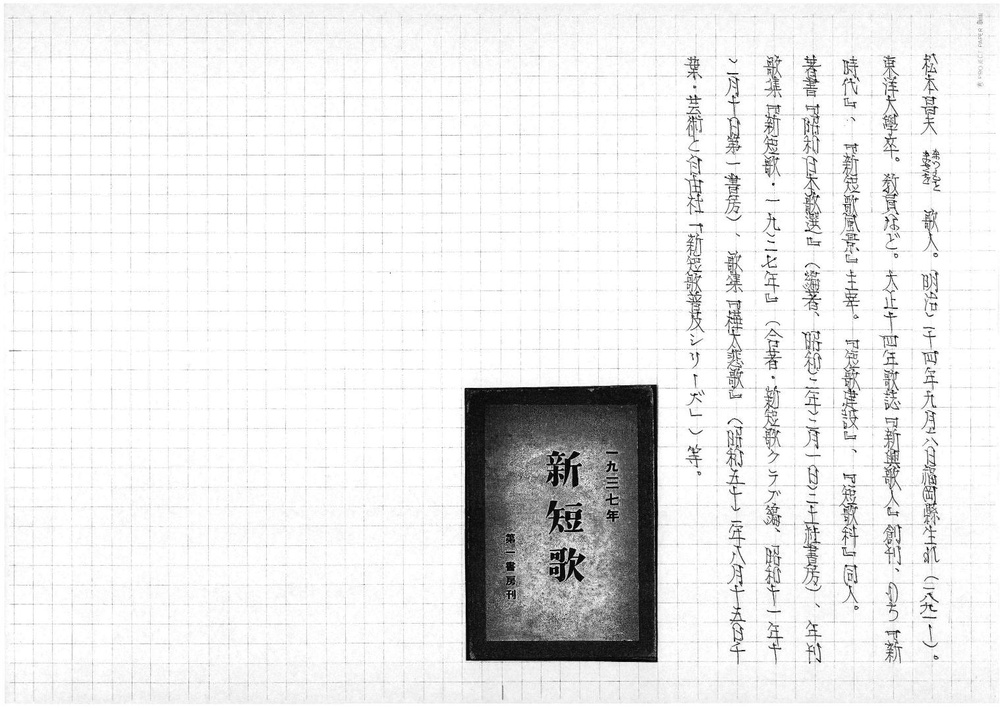 松本昌夫 まつもとまさを 歌人。明治二十四年九月六日福岡縣生れ（一八九一ー）。
東洋大學卒。教員など。大正十四年歌誌『新興歌人』創刊、のち『新
時代』、『新短歌風景』主宰。『短歌建設』、『短歌科』同人。
著書『昭和日本歌選』（編著、昭和二年二月一日二土社書房）、年刊
歌集『新短歌・一九三七年』（合著・新短歌クラブ編、昭和十一年十
二月十日第一書房）、歌集『樺太悲歌』（昭和五十二年八月十五日千
葉・芸術と自由社「新短歌普及シリーズ」）等。
一九三七年
新短歌
第一書房刊